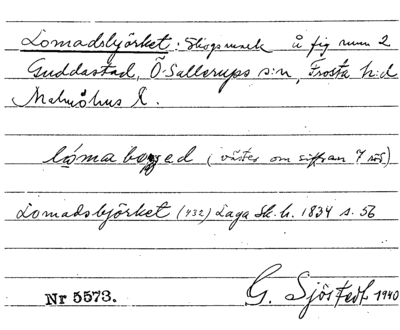 Lomadsbjörket: Skogsmark å fig num 2
Guddastad, Ö. Sallerups s:n, Frosta h:d
Malmöhus l.
lómabogged (väster om siffran 7 rös)
Lomadsbjörket (432) Laga Sk. h. 1834 s. 56
Nr 5573.
G. Sjöstedt 1940